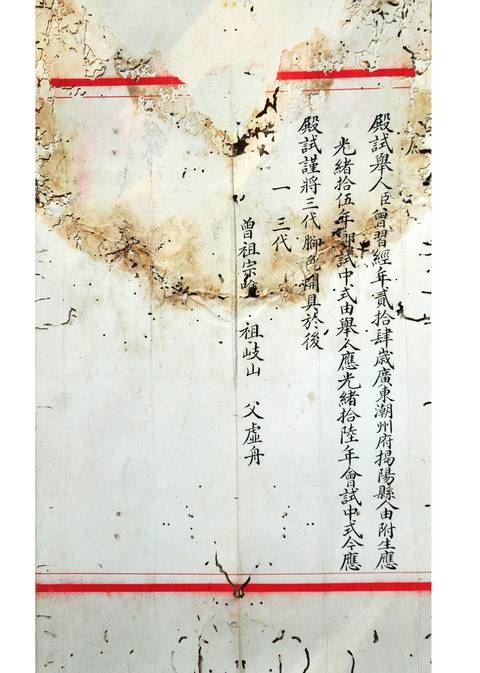 殿試舉人臣曾習經年貳拾肆歲廣東潮州府揭陽縣人由附生應
光緒拾伍年鄉試中式由舉人應光緒拾陸年會試中式今應
殿試謹將三代腳色開具於後
一 三代
曾祖宗 祖岐山 父虛舟